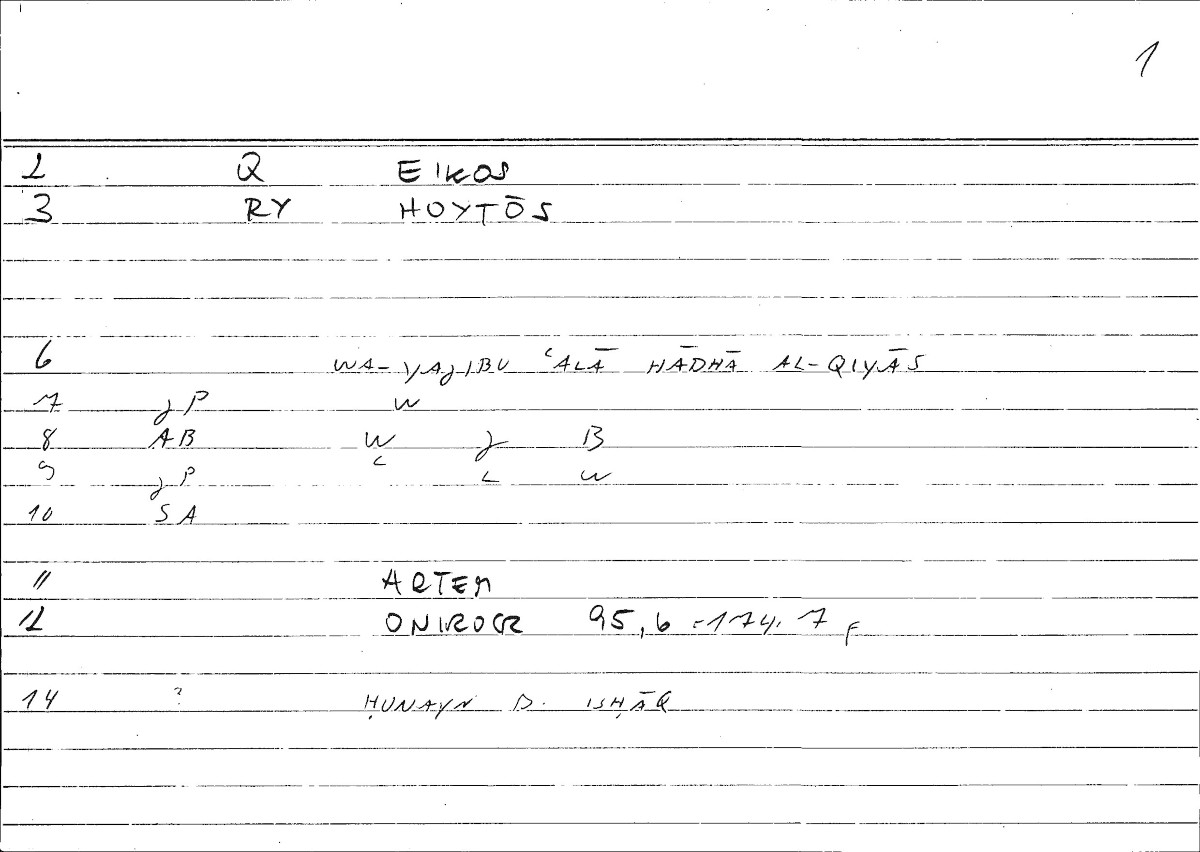 1
2 Q EIKOS
3 RY HOYTŌS
6 WA-YAJIBU ʿALĀ HĀDHĀ AL-QIYĀS
7 JP W
8 AB W J B
9 JP C C W
10 SA
11 ARTEM
12 ONIROCR 95,6 = 174.7 F
14 ? ḤUNAYN B. ISḤĀQ